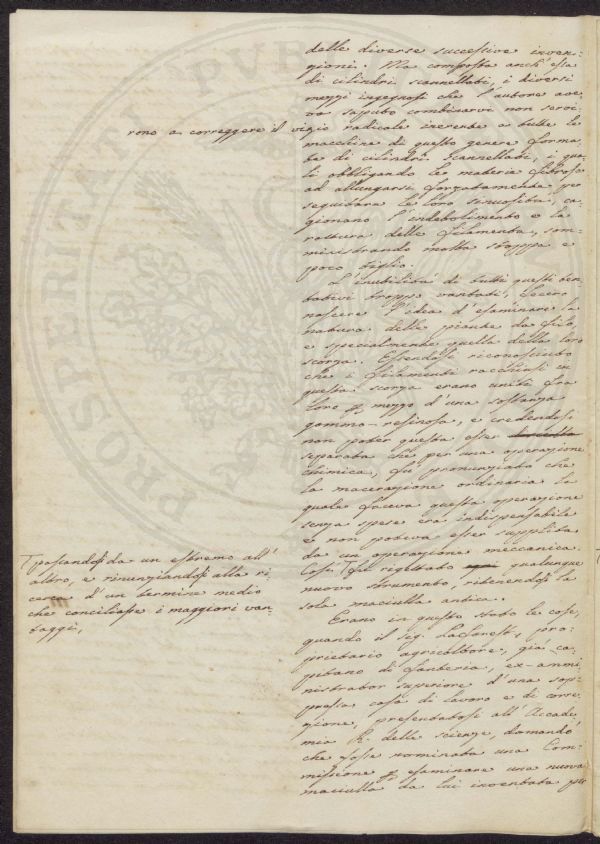 delle diverse successive inven-
zioni. Ma composta anch'essa
di cilindri scannellati, i diversi
mezzi ingegnosi che l'autore ave-
va saputo combinarvi non servi-
rono a correggere il vizio radicale inerente a tutte le
macchine di questo genere forma-
te di cilindri scannellati, i qua-
li obbligando le materie fibrose
ad allungarsi forzatamente per
seguitare le loro sinuosità, ca-
gionano l'indebolimento e la
rottura delle filamenta, som-
ministrando molta stoppa e
poco tiglio.
L'inutilità di tutti questi ten-
tativi troppo vantati, fecero
nascere l'idea d'esaminare la
natura delle piante da filo,
e specialmente quella della loro
scorza. Essendosi riconosciuto
che i filamenti racchiusi in
questa scorza erano uniti fra
loro p mezzo d'una sostanza
gommo-resinosa, e credendosi
non poter questa esser
separata che per una operazione
chimica, fu pronunziato che
la macerazione ordinaria la
quale faceva questa operazione
senza spese era indispensabile
e non poteva esser supplita
da un operazione meccanica.
Così T fu rigettato qualunque
nuovo strumento ritenendosi la
sola maciulla antica.
T postandosi da un estremo all'
altro, e rinunziandosi alla ri-
cerca d'un termine medio
che conciliasse i maggiori van-
taggi,
Erano in questo stato le cose,
quando il sig. Laforest, pro-
prietario agricoltore, già ca-
pitano di fanteria, ex-ammi-
nistrator superiore d'una sop-
pressa casa di lavoro e di corre-
zione, presentatosi all'Accade-
mia R. delle scienze, domandò
che fosse nominata una Com-
missione p esaminare una nuova
maciulla da lui inventata per